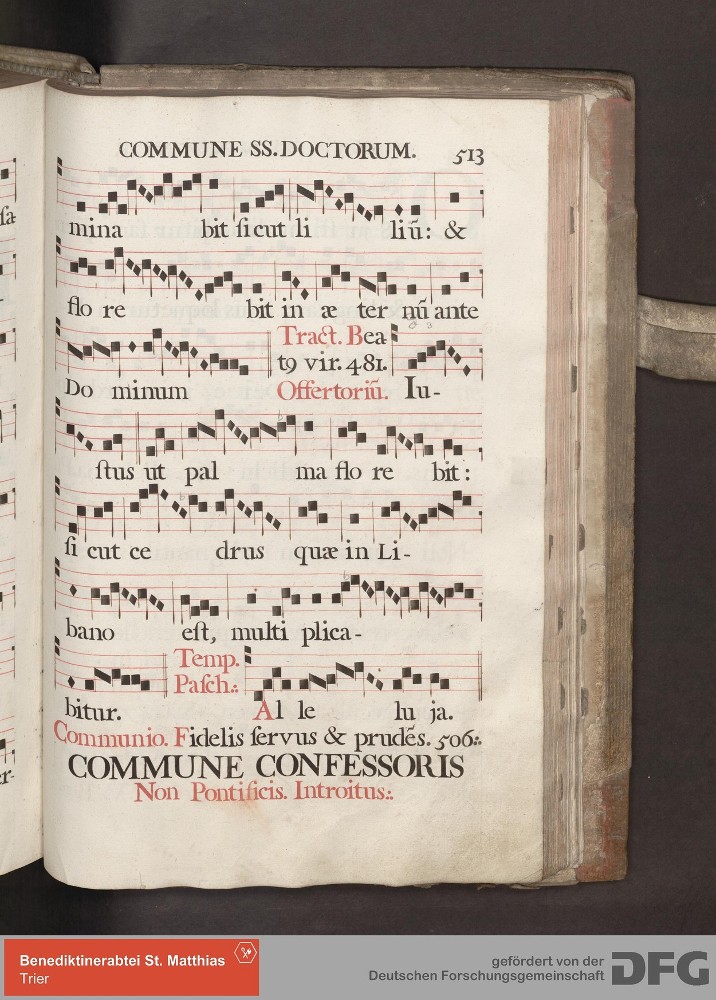 COMMUNE SS. DOCTORUM. 513
mina bit sicut li liũ: &
flo re bit in æ ter nũ ante
Do minum Tract. Bea-
t9 vir. 481.
Offertoriũ. Iu-
stus ut pal ma flo re bit:
si cut ce drus quæ in Li-
bano est, multi plica-
bitur. Temp.
Pasch:. Al le lu ja.
Communio. Fidelis servus & prudẽs. 506:.
COMMUNE CONFESSORIS
Non Pontificis. Introitus:.
sa
er-
Benediktinerabtei St. Matthias
Trier
gefördert von der
Deutschen Forschungsgemeinschaft DFG